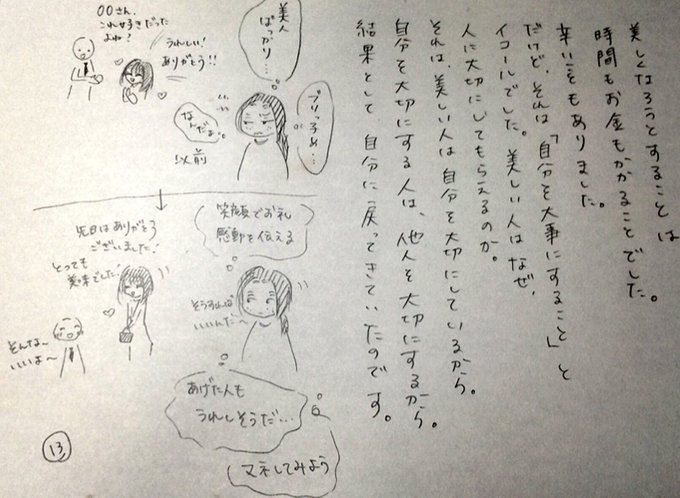 美しくなろうとすることは
時間もお金もかかることでした。
辛いこともありました。
だけど、それは「自分を大事にすること」と
イコールでした。美しい人はなぜ、
人に大切にしてもらえるのか。
それは、美しい人は自分を大切にしているから。
自分を大切にする人は、他人を大切にするから。
結果として 自分に戻ってきていたのです。
○○さん、
これ好きだった
よね?
うれしい!
ありがとう!!
美人
ばっかり…
ブリっ子め…
なんだよ。
以前
先日はありがとう
ございました!
とっても
美味でした!
そんな〜
いいよ〜
笑顔でお礼
感動を伝える
そうすれば
いいんだ〜
あげた人も
うれしそうだ…
マネしてみよう
13